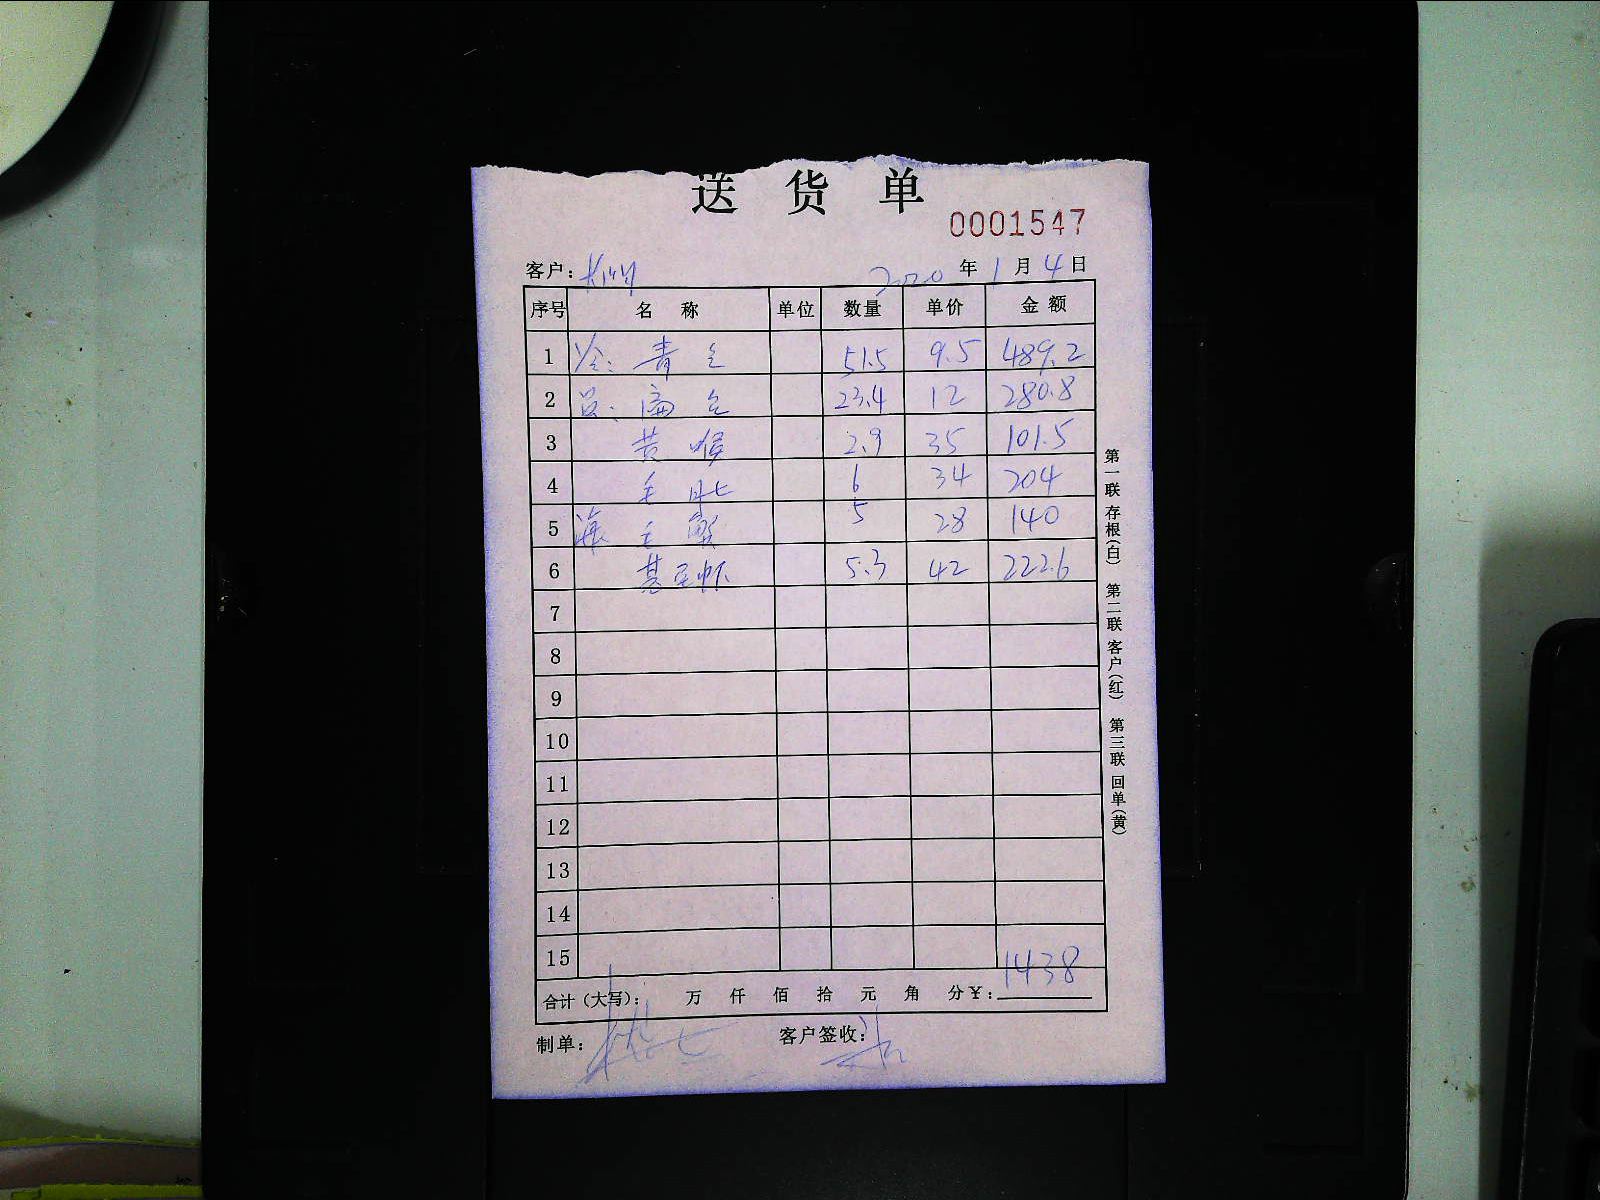 送 货 单
0001547
客户: 2020 年 1 月 4 日
序号 名 称 单位 数量 单价 金 额
1 冷: 青 51.5 9.5 489.2
2 23.4 12 280.8
3 黄 喉 2.9 35 101.5
4 毛 肚 6 34 204
5 海 毛 蟹 5 28 140
6 基围虾 5.3 42 222.6
7
8
9
10
11
12
13
14
15
1438
合计（大写）: 万 仟 佰 拾 元 角 分 ¥:
制单: 客户签收:
第一联 存根(白) 第二联 客户(红) 第三联 回单(黄)